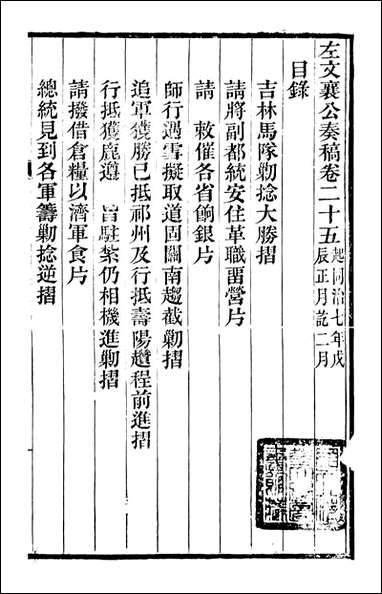 左文襄公奏稿卷二十五起同治七年戊辰正月訖二月
目錄
吉林馬隊勦捻大勝摺
請將副都統安住革職畱營片
請 敕催各省餉銀片
師行遇雪擬取道固關南趨截勦摺
追軍獲勝已抵祁州及行抵壽陽趲程前進摺
行抵獲鹿遵 旨駐紮仍相機進勦摺
請撥借倉糧以濟軍食片
總統見到各軍籌勦捻逆摺